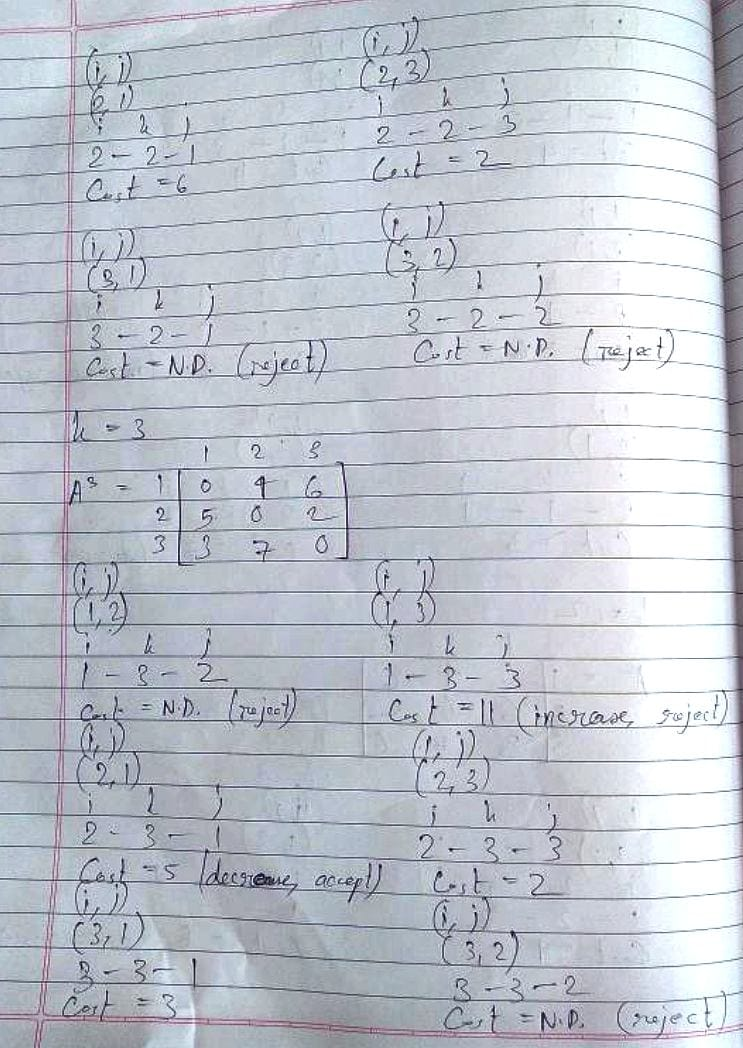 (i, j)
(2, 1)
i k j
2 - 2 - 1
Cost = 6
(i, j)
(2, 3)
i k j
2 - 2 - 3
Cost = 2
(i, j)
(3, 1)
i k j
3 - 2 - 1
Cost = N.D. (reject)
(i, j)
(3, 2)
i k j
3 - 2 - 2
Cost = N.D. (reject)
k = 3
1 2 3
A³ = 1 0 4 6
2 5 0 2
3 3 7 0
(i, j)
(1, 2)
i k j
1 - 3 - 2
Cost = N.D. (reject)
(i, j)
(1, 3)
i k j
1 - 3 - 3
Cost = 11 (increase, reject)
(i, j)
(2, 1)
i k j
2 - 3 - 1
Cost = 5 (decrease, accept)
(i, j)
(2, 3)
i k j
2 - 3 - 3
Cost = 2
(i, j)
(3, 1)
3 - 3 - 1
Cost = 3
(i, j)
(3, 2)
3 - 3 - 2
Cost = N.D. (reject)